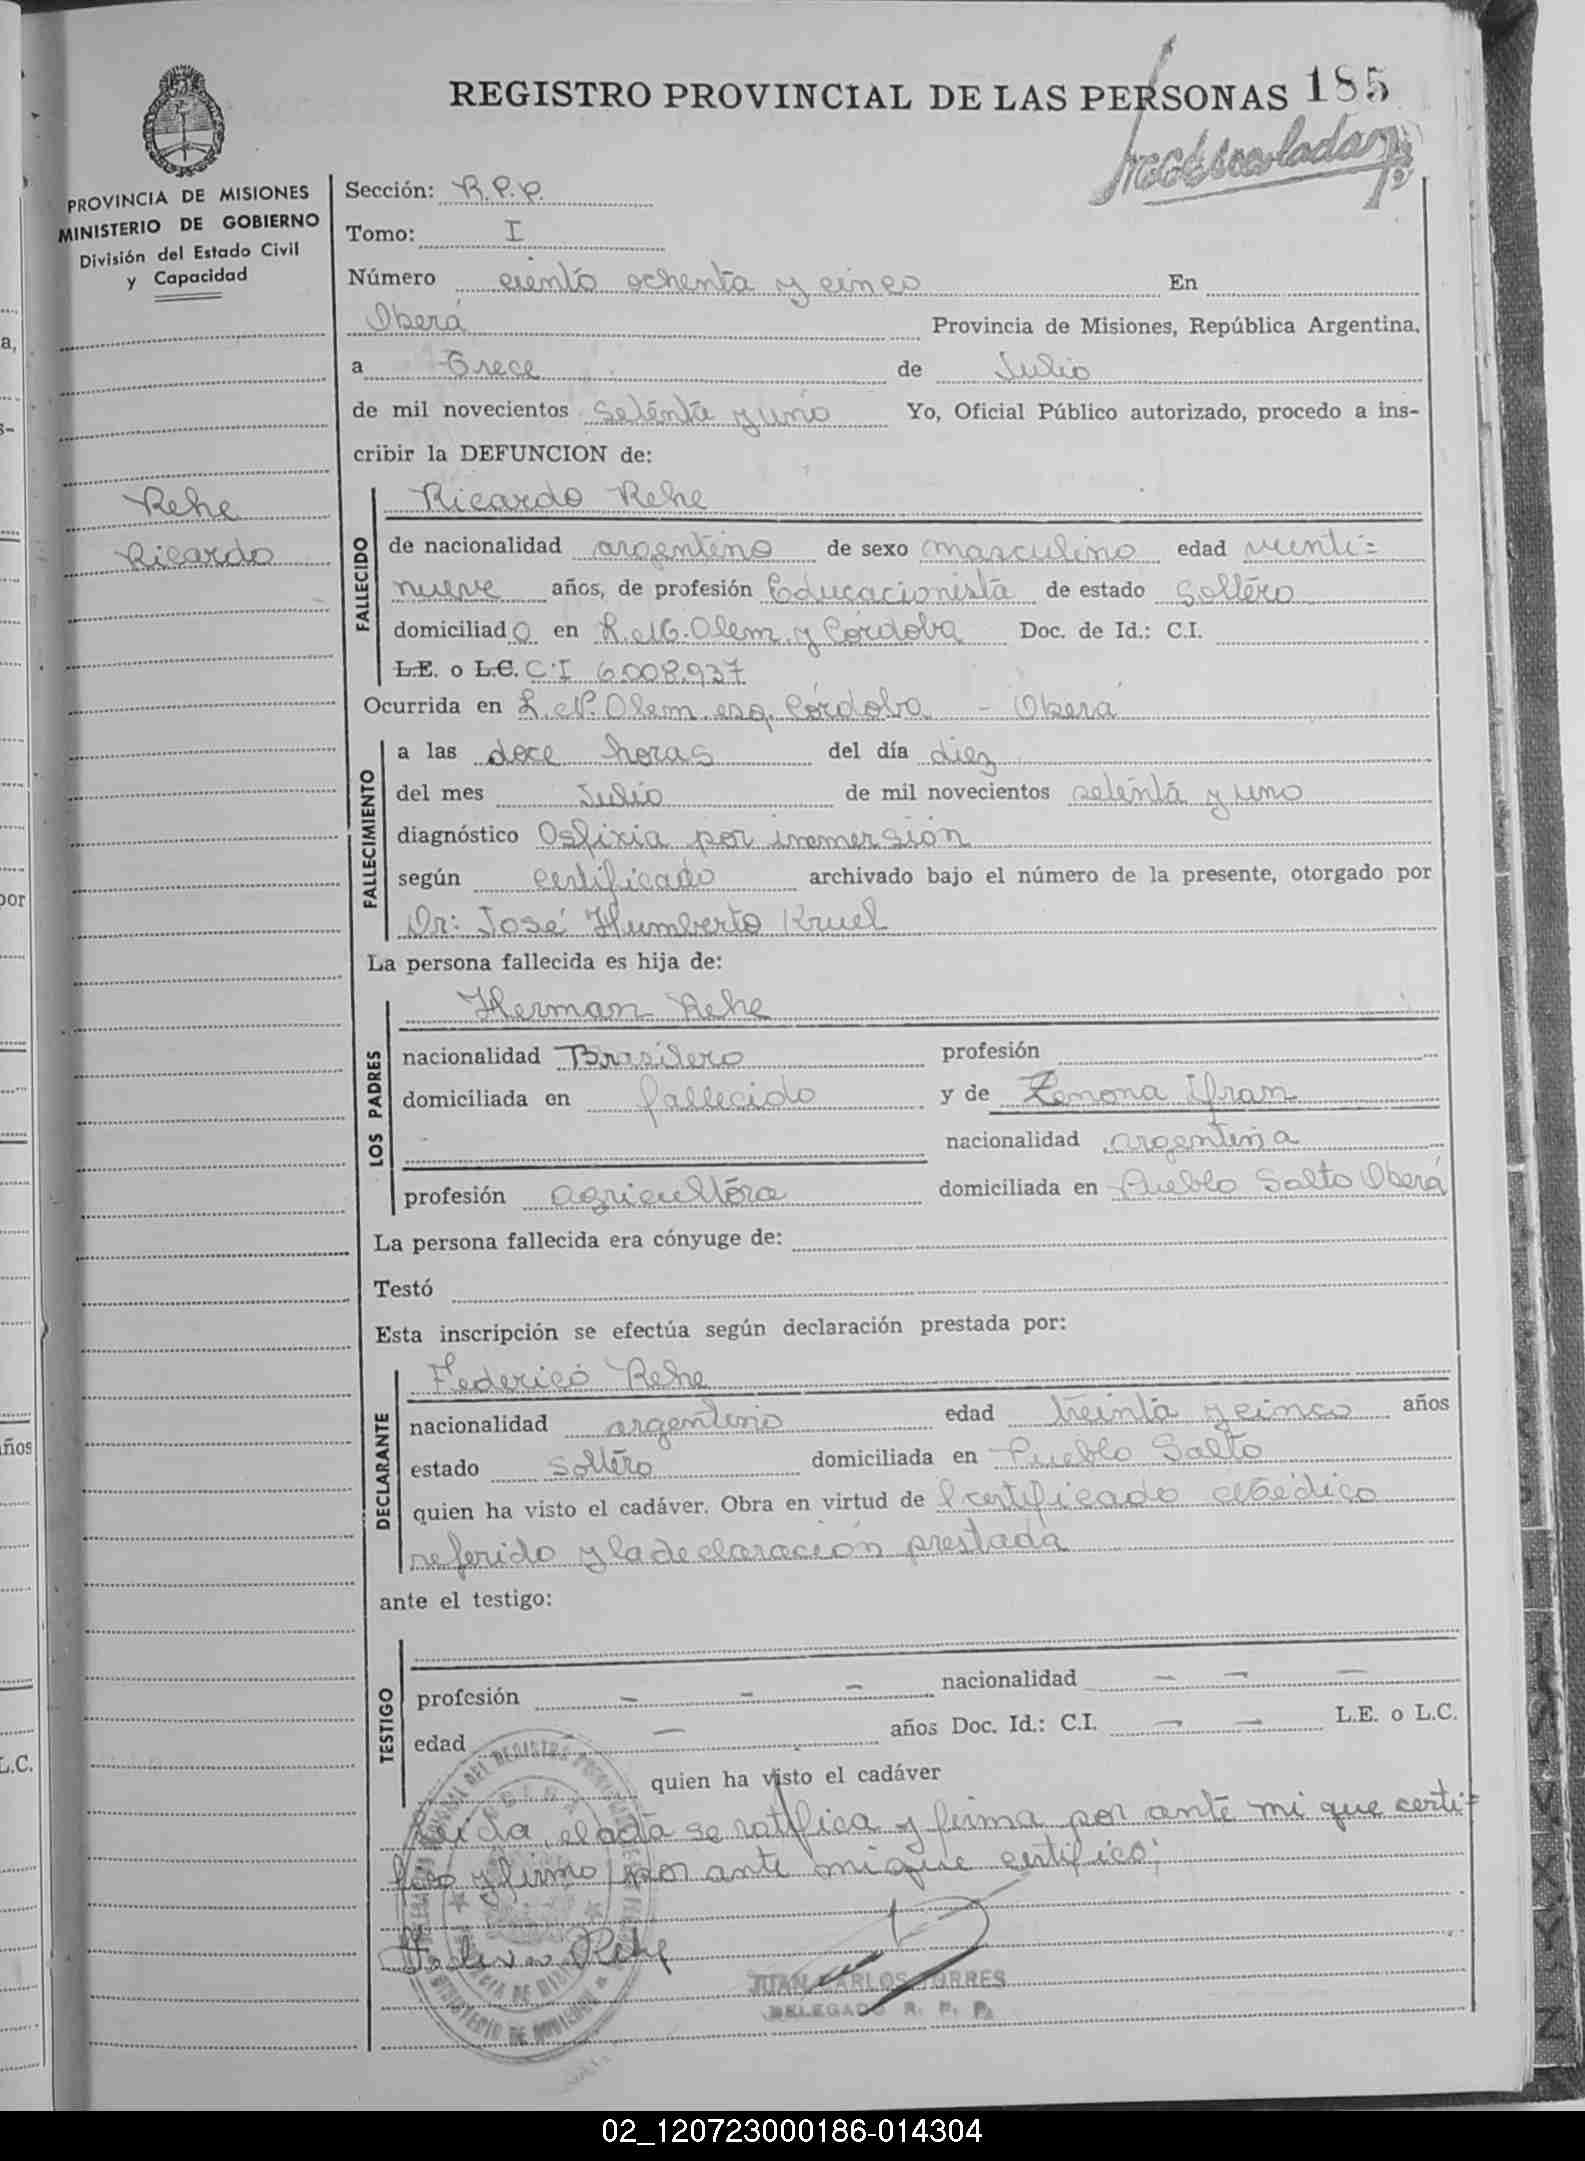 REGISTRO PROVINCIAL DE LAS PERSONAS 185
PROVINCIA DE MISIONES
MINISTERIO DE GOBIERNO
División del Estado Civil
y Capacidad
Rehe
Ricardo
Sección: R.P.P.
Tomo: I
Número ciento ochenta y cinco En
Oberá Provincia de Misiones, República Argentina,
a Trece de Julio
de mil novecientos setenta y uno Yo, Oficial Público autorizado, procedo a ins-
cribir la DEFUNCION de:
FALLECIDO
Ricardo Rehe
de nacionalidad argentino de sexo masculino edad veinti=
nueve años, de profesión Educacionista de estado soltero
domiciliado en Olem y Córdoba Doc. de Id.: C.I.
L.E. o L.C. C.I 6.008.937
Ocurrida en L.N. Olem esq. Córdoba - Oberá
FALLECIMIENTO
a las doce horas del día diez
del mes Julio de mil novecientos setenta y uno
diagnóstico Osfixia por inmersión
según certificado archivado bajo el número de la presente, otorgado por
Dr: José Humberto Kruel
La persona fallecida es hija de:
LOS PADRES
Herman Rehe
nacionalidad Brasilero profesión
domiciliada en fallecido y de Zenona Ifran
nacionalidad argentina
profesión agricultora domiciliada en Pueblo Salto Oberá
La persona fallecida era cónyuge de:
Testó
Esta inscripción se efectúa según declaración prestada por:
DECLARANTE
Federico Rehe
nacionalidad argentino edad treinta y cinco años
estado soltero domiciliada en Pueblo Salto
quien ha visto el cadáver. Obra en virtud de l certificado Médico
referido y la declaración prestada
ante el testigo:
TESTIGO
profesión - - - nacionalidad - - -
edad - años Doc. Id.: C.I. - - L.E. o L.C.
quien ha visto el cadáver
Leída el acta se ratifica y firma por ante mi que certi=
fico y firmo por ante mi que certifico;
Rehe
JUAN CARLOS TORRES
DELEGADO R. P. P.
a,
s-
por
años
L.C.
02_120723000186-014304